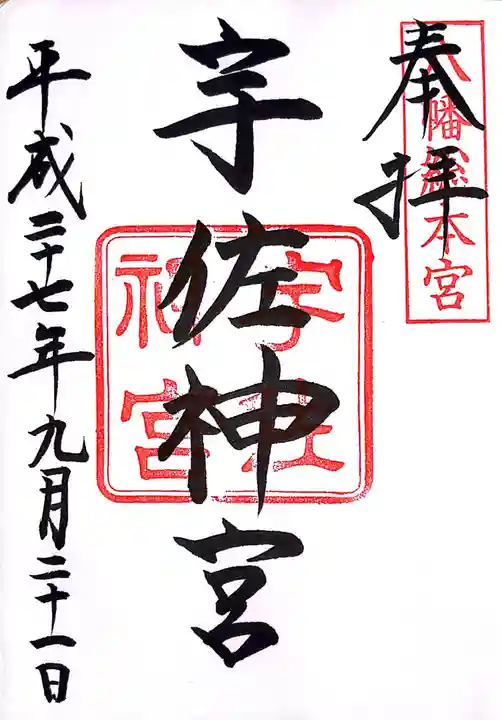 奉拝
八幡総本宮
宇佐神宮
宇佐
神宮
平成二十七年九月二十一日